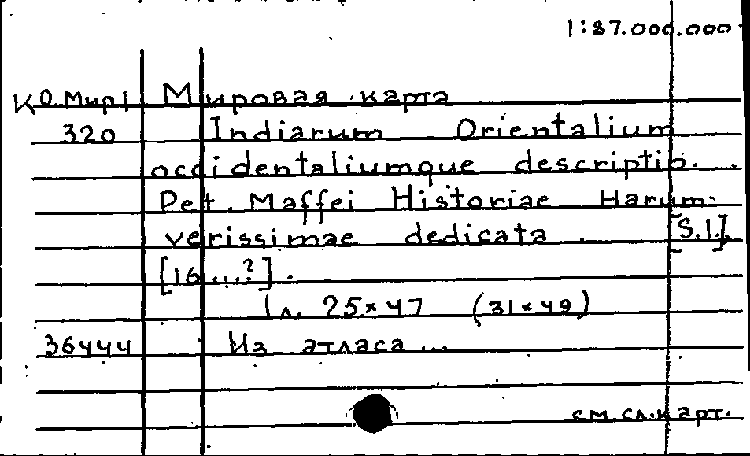 1:87.000.000
КО.Мир1 Мировая карта
320 Indiarum Orientalium
occidentaliumque descriptio.
Pet. Maffei Historiae Harum
verissimae dedicata [S.l.],
[16...?].
1 л. 25×47 (31×49)
36444 Из атласа ...
см. сл. карт.